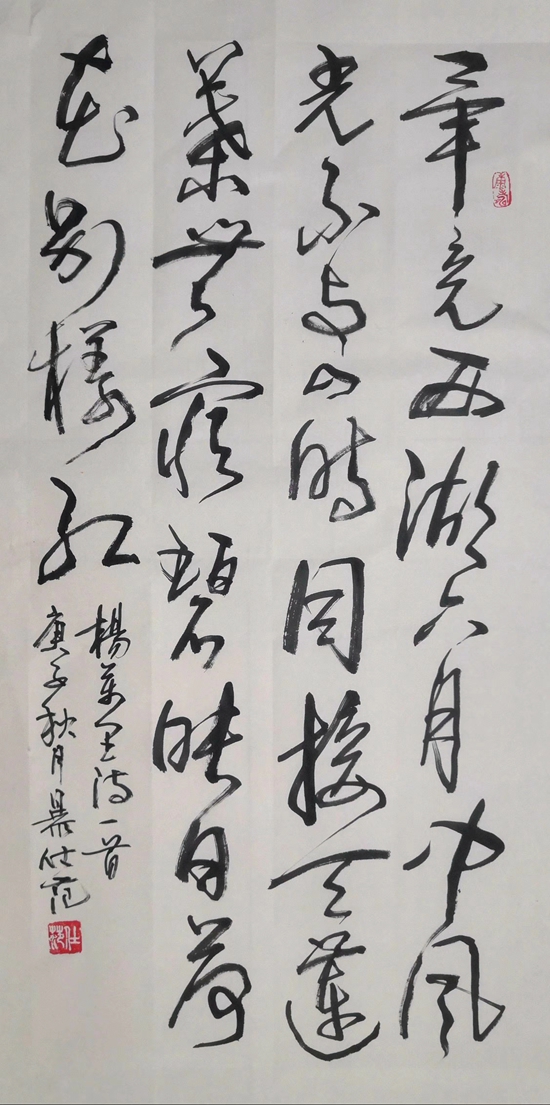 畢竟西湖六月中風
光不与四時同接天蓮
葉無窮碧映日荷
花別樣紅
楊萬里詩一首
庚子秋月 仕范
仕范